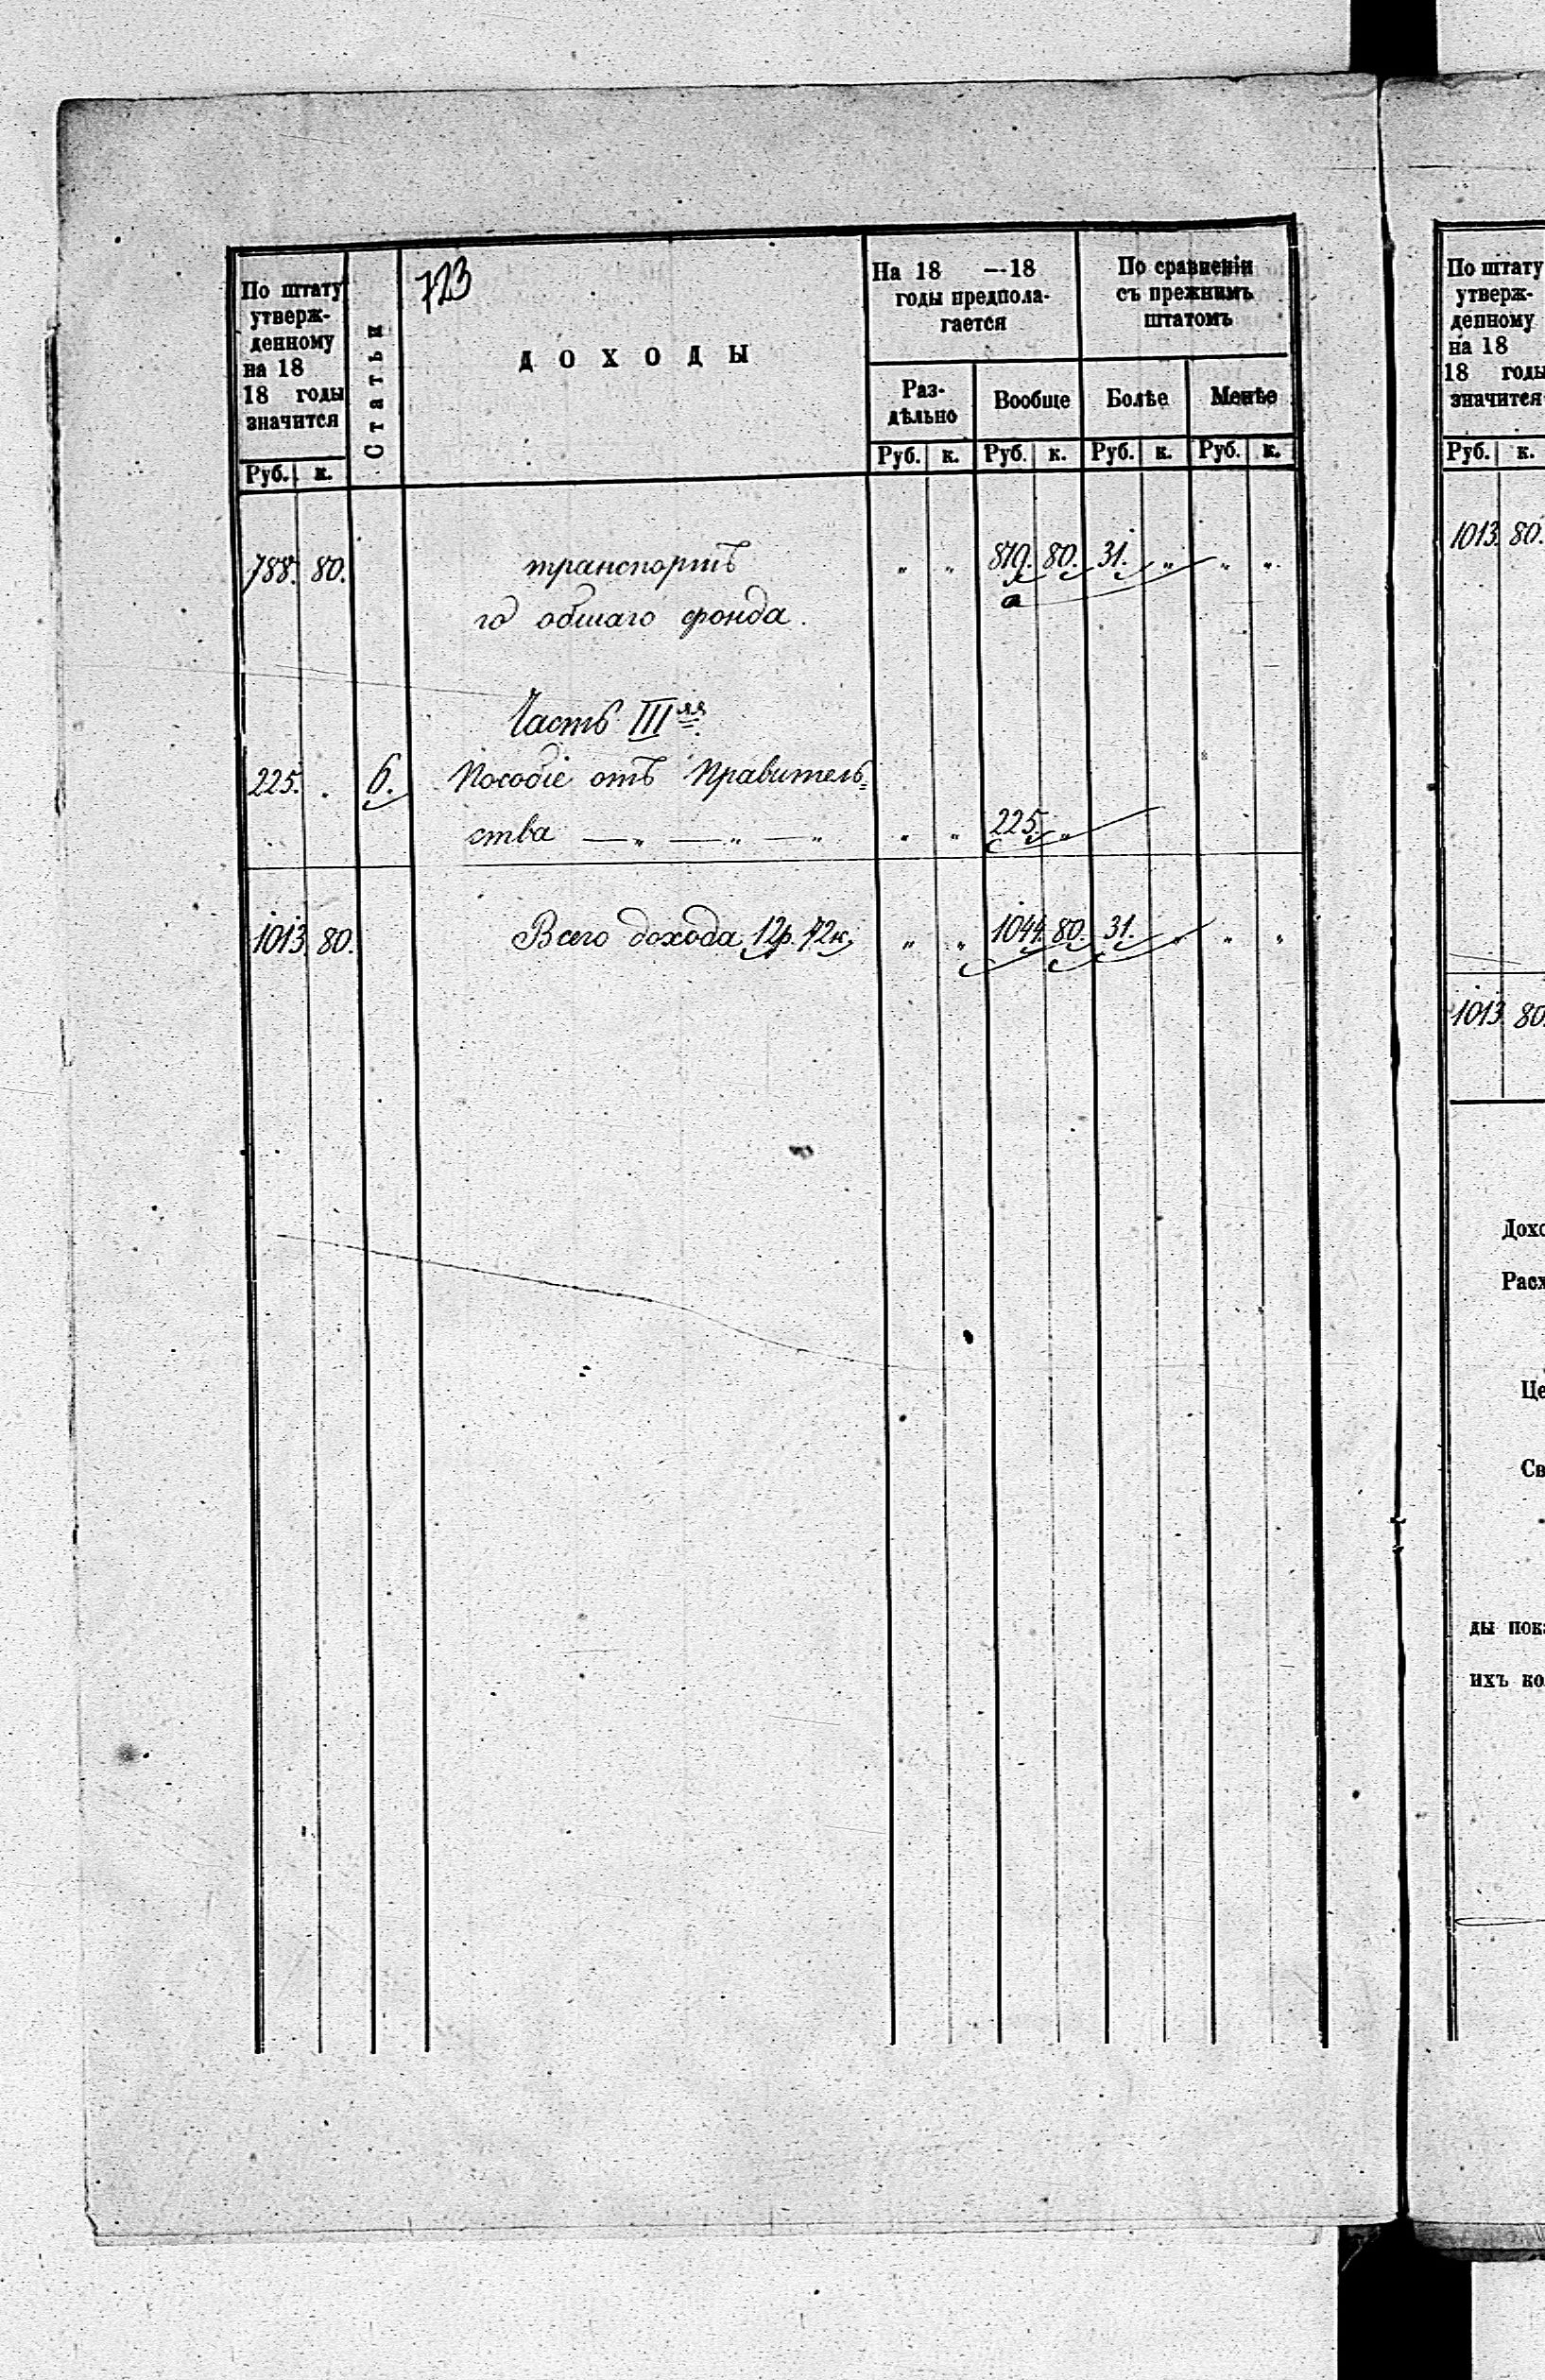 723
По штату
утверж-
денному
на 18
18 годы
значится
Руб. к.
Статьи
ДОХОДЫ
На 18 —18
годы предпола-
гается
Раз-
дѣльно
Вообще
Руб. к. Руб. к.
По сравненію
съ прежнимъ
штатомъ
Болѣе Менѣе
Руб. к. Руб. к.
788. 80. транспортъ „ „ 819. 80. 31. „ „ „
общаго фонда.
Часть III ая
225. . 6. Пособіе отъ Правитель=
ства — „ — „ — „ „ „ 225. „
1013. 80. Всего дохода 12р. 72к. „ „ 1044. 80. 31. „ „ „
По штату
утверж-
денному
на 18
18 годы
значится
Руб. к.
1013. 80.
1013 80.
Дохо
Расх
Це
Св
ды пок
ихъ ко